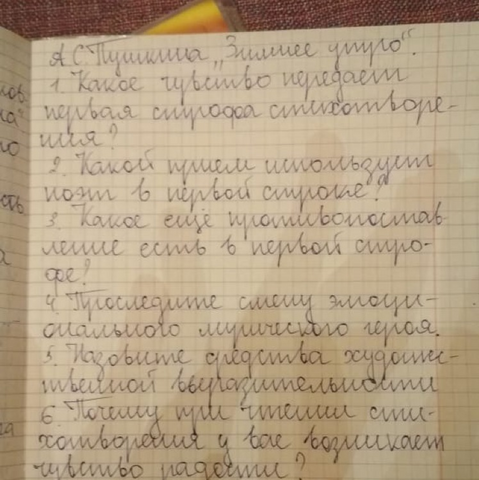 А.С. Пушкина „Зимнее утро".
1. Какое чувство передаёт
первая строфа стихотворе-
ния?
2. Какой прием использует
поэт в первой строке?
3. Какое ещё противопостав-
ление есть в первой стро-
фе?
4. Проследите смену эмоци-
онального лирического героя.
5. Назовите средства художе-
ственной выразительности
6. Почему при чтении сти-
хотворения у вас возникает
чувство радости?